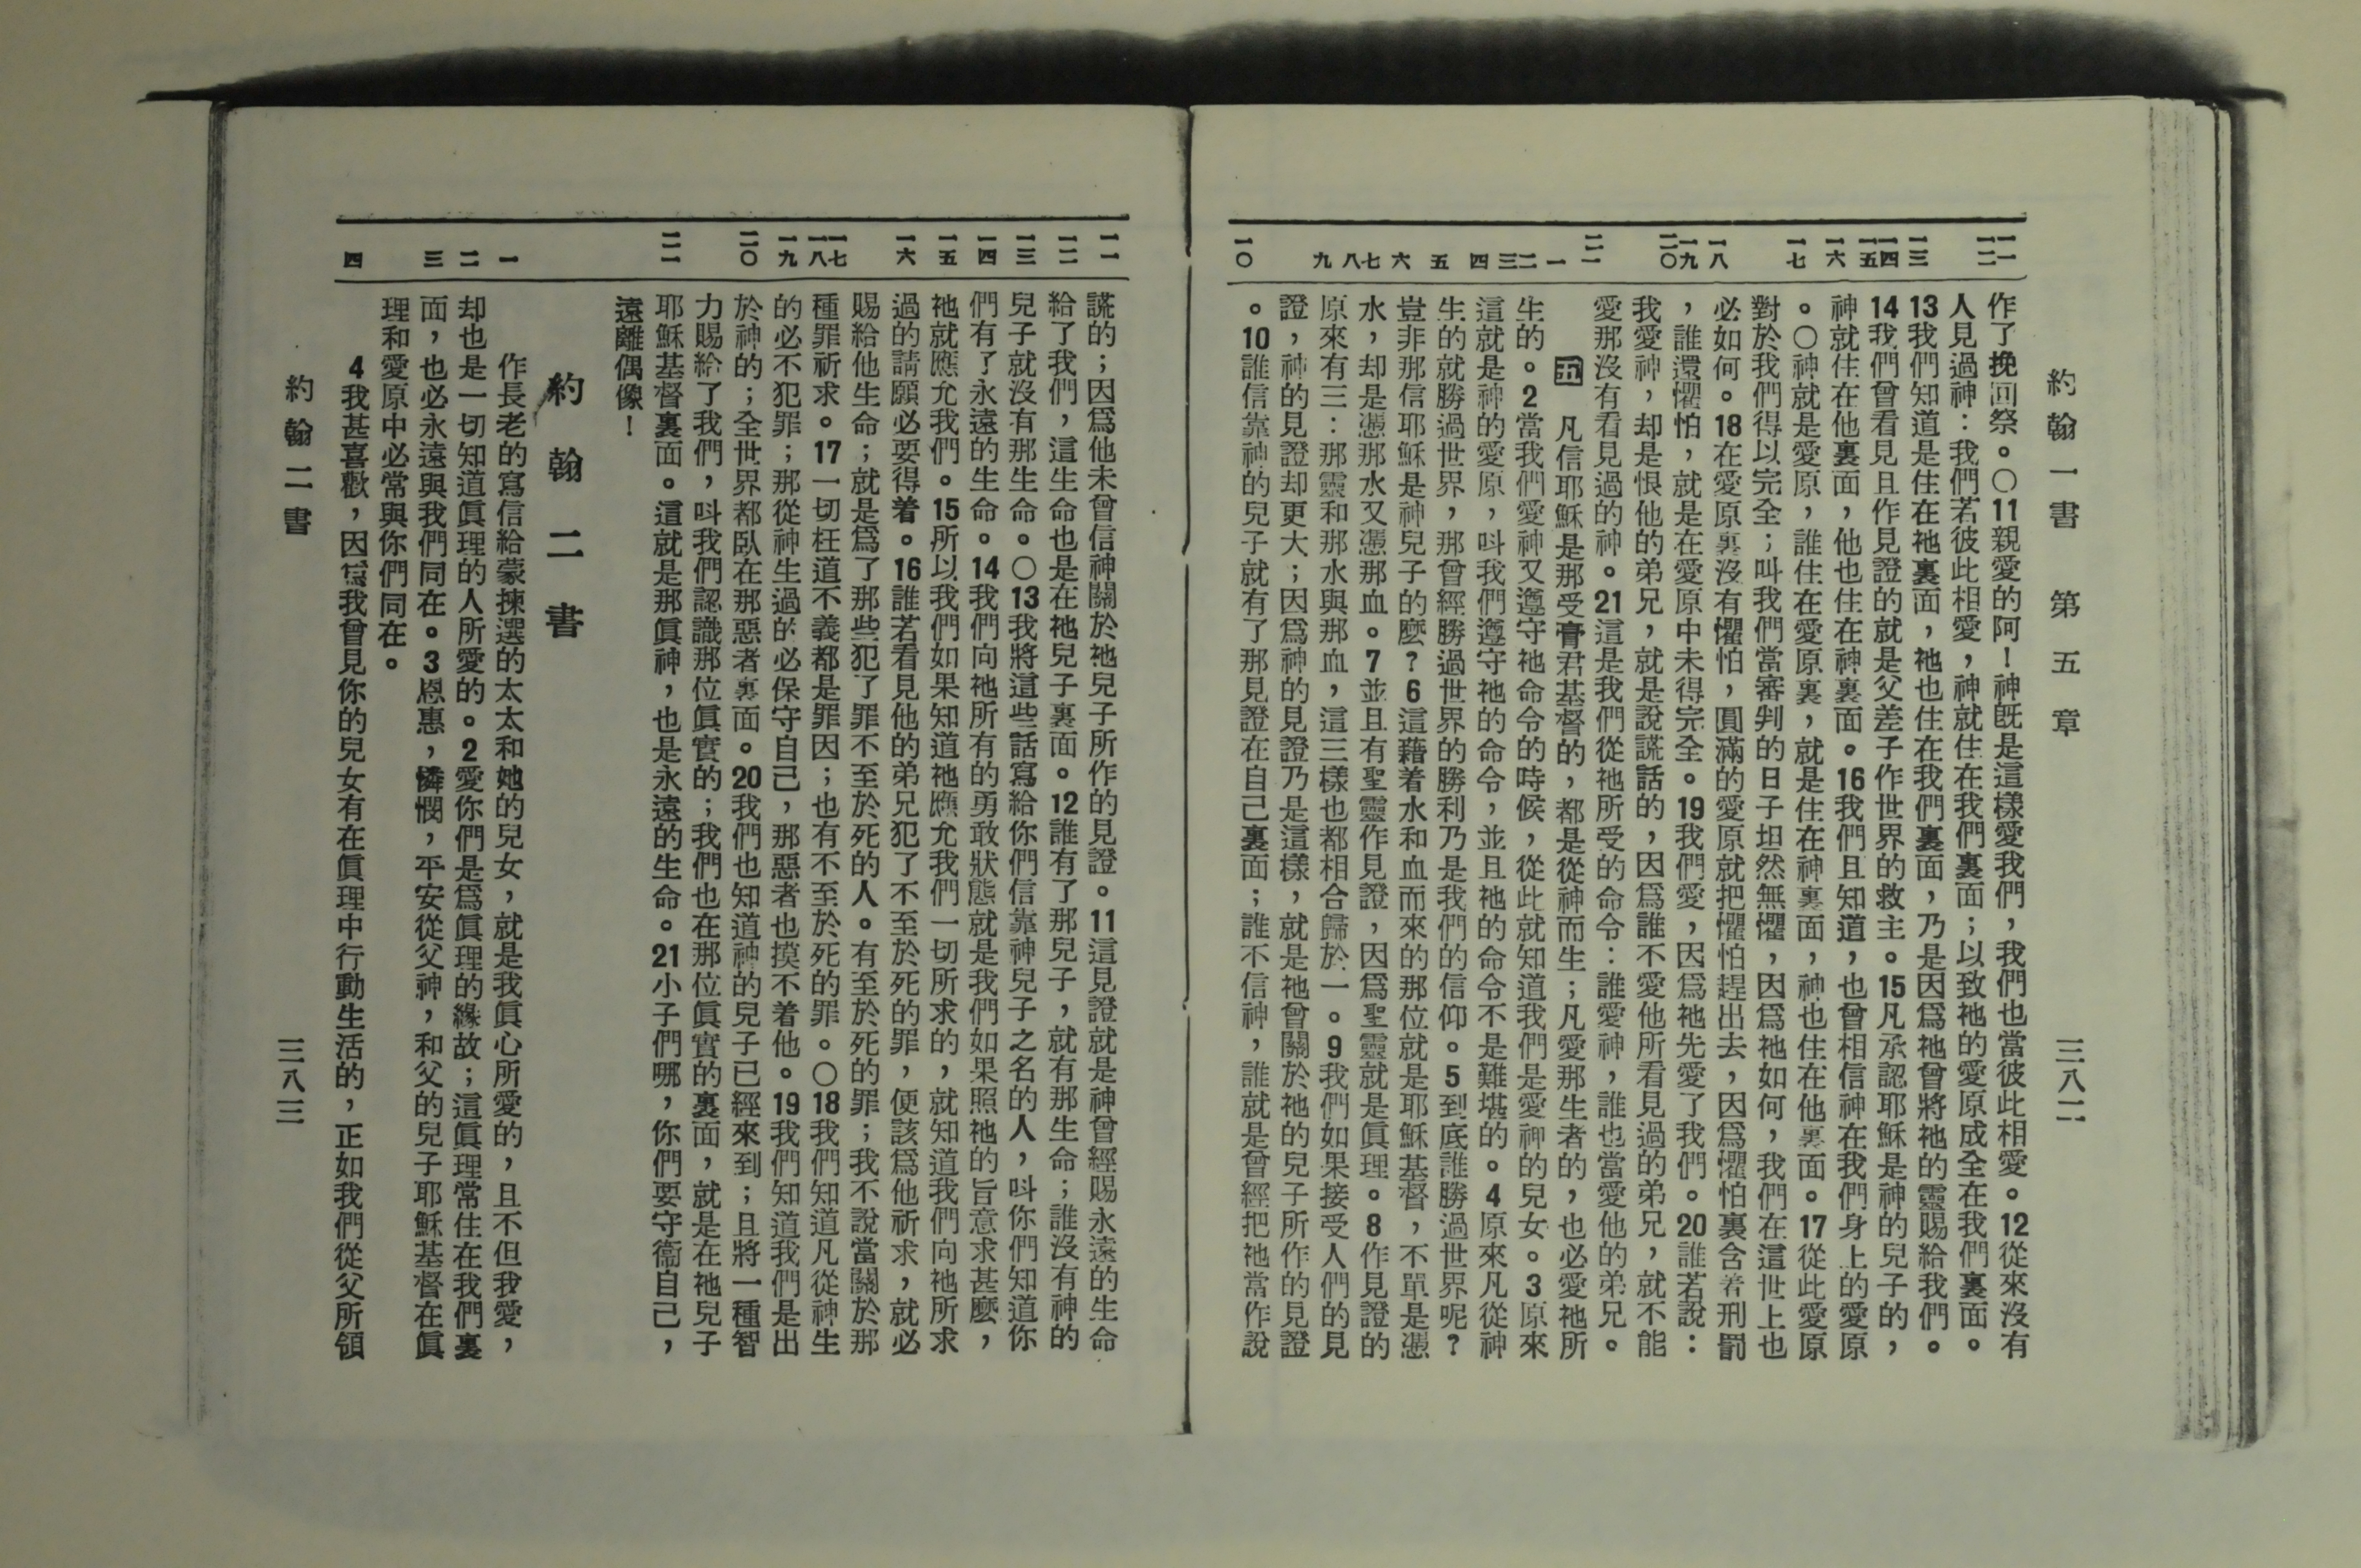 約翰一書 第五章 三八二
一一 一二 一三 一四 一五 一六 一七 一八 一九 二〇 二一 一 二 三 四 五 六 七 八 九 一〇
作了挽回祭。○11親愛的阿！神旣是這樣愛我們，我們也當彼此相愛。12從來沒有
人見過神：我們若彼此相愛，神就住在我們裏面；以致祂的愛原成全在我們裏面。
13我們知道是住在祂裏面，祂也住在我們裏面，乃是因爲祂曾將祂的靈賜給我們。
14我們曾看見且作見證的就是父差子作世界的救主。15凡承認耶穌是神的兒子的，
神就住在他裏面，他也住在神裏面。16我們且知道，也曾相信神在我們身上的愛原
。○神就是愛原，誰住在愛原裏，就是住在神裏面，神也住在他裏面。17從此愛原
對於我們得以完全；叫我們當審判的日子坦然無懼，因爲祂如何，我們在這世上也
必如何。18在愛原裏沒有懼怕，圓滿的愛原就把懼怕趕出去，因爲懼怕裏含着刑罰
，誰還懼怕，就是在愛原中未得完全。19我們愛，因爲祂先愛了我們。20誰若說：
我愛神，却是恨他的弟兄，就是說謊話的，因爲誰不愛他所看見過的弟兄，就不能
愛那沒有看見過的神。21這是我們從祂所受的命令：誰愛神，誰也當愛他的弟兄。
五 凡信耶穌是那受膏君基督的，都是從神而生；凡愛那生者的，也必愛祂所
生的。2當我們愛神又遵守祂命令的時候，從此就知道我們是愛神的兒女。3原來
這就是神的愛原，叫我們遵守祂的命令，並且祂的命令不是難堪的。4原來凡從神
生的就勝過世界，那曾經勝過世界的勝利乃是我們的信仰。5到底誰勝過世界呢？
豈非那信耶穌是神兒子的麽？6這藉着水和血而來的那位就是耶穌基督，不單是憑
水，却是憑那水又憑那血。7並且有聖靈作見證，因爲聖靈就是眞理。8作見證的
原來有三：那靈和那水與那血，這三樣也都相合歸於一。9我們如果接受人們的見
證，神的見證却更大；因爲神的見證乃是這樣，就是祂曾關於祂的兒子所作的見證
。10誰信靠神的兒子就有了那見證在自己裏面；誰不信神，誰就是曾經把祂當作說
一一 一二 一三 一四 一五 一六 一七 一八 一九 二〇 二一 一 二 三 四
謊的；因爲他未曾信神關於祂兒子所作的見證。11這見證就是神曾經賜永遠的生命
給了我們，這生命也是在祂兒子裏面。12誰有了那兒子，就有那生命；誰沒有神的
兒子就沒有那生命。○13我將這些話寫給你們信靠神兒子之名的人，叫你們知道你
們有了永遠的生命。14我們向祂所有的勇敢狀態就是我們如果照祂的旨意求甚麽，
祂就應允我們。15所以我們如果知道祂應允我們一切所求的，就知道我們向祂所求
過的請願必要得着。16誰若看見他的弟兄犯了不至於死的罪，便該爲他祈求，就必
賜給他生命；就是爲了那些犯了罪不至於死的人。有至於死的罪；我不說當關於那
種罪祈求。17一切枉道不義都是罪因；也有不至於死的罪。○18我們知道凡從神生
的必不犯罪；那從神生過的必保守自己，那惡者也摸不着他。19我們知道我們是出
於神的；全世界都臥在那惡者裏面。20我們也知道神的兒子已經來到；且將一種智
力賜給了我們，叫我們認識那位眞實的；我們也在那位眞實的裏面，就是在祂兒子
耶穌基督裏面。這就是那眞神，也是永遠的生命。21小子們哪，你們要守衞自己，
遠離偶像！
約翰二書
作長老的寫信給蒙揀選的太太和她的兒女，就是我眞心所愛的，且不但我愛，
却也是一切知道眞理的人所愛的。2愛你們是爲眞理的緣故；這眞理常住在我們裏
面，也必永遠與我們同在。3恩惠，憐憫，平安從父神，和父的兒子耶穌基督在眞
理和愛原中必常與你們同在。
4我甚喜歡，因爲我曾見你的兒女有在眞理中行動生活的，正如我們從父所領
約翰二書 三八三